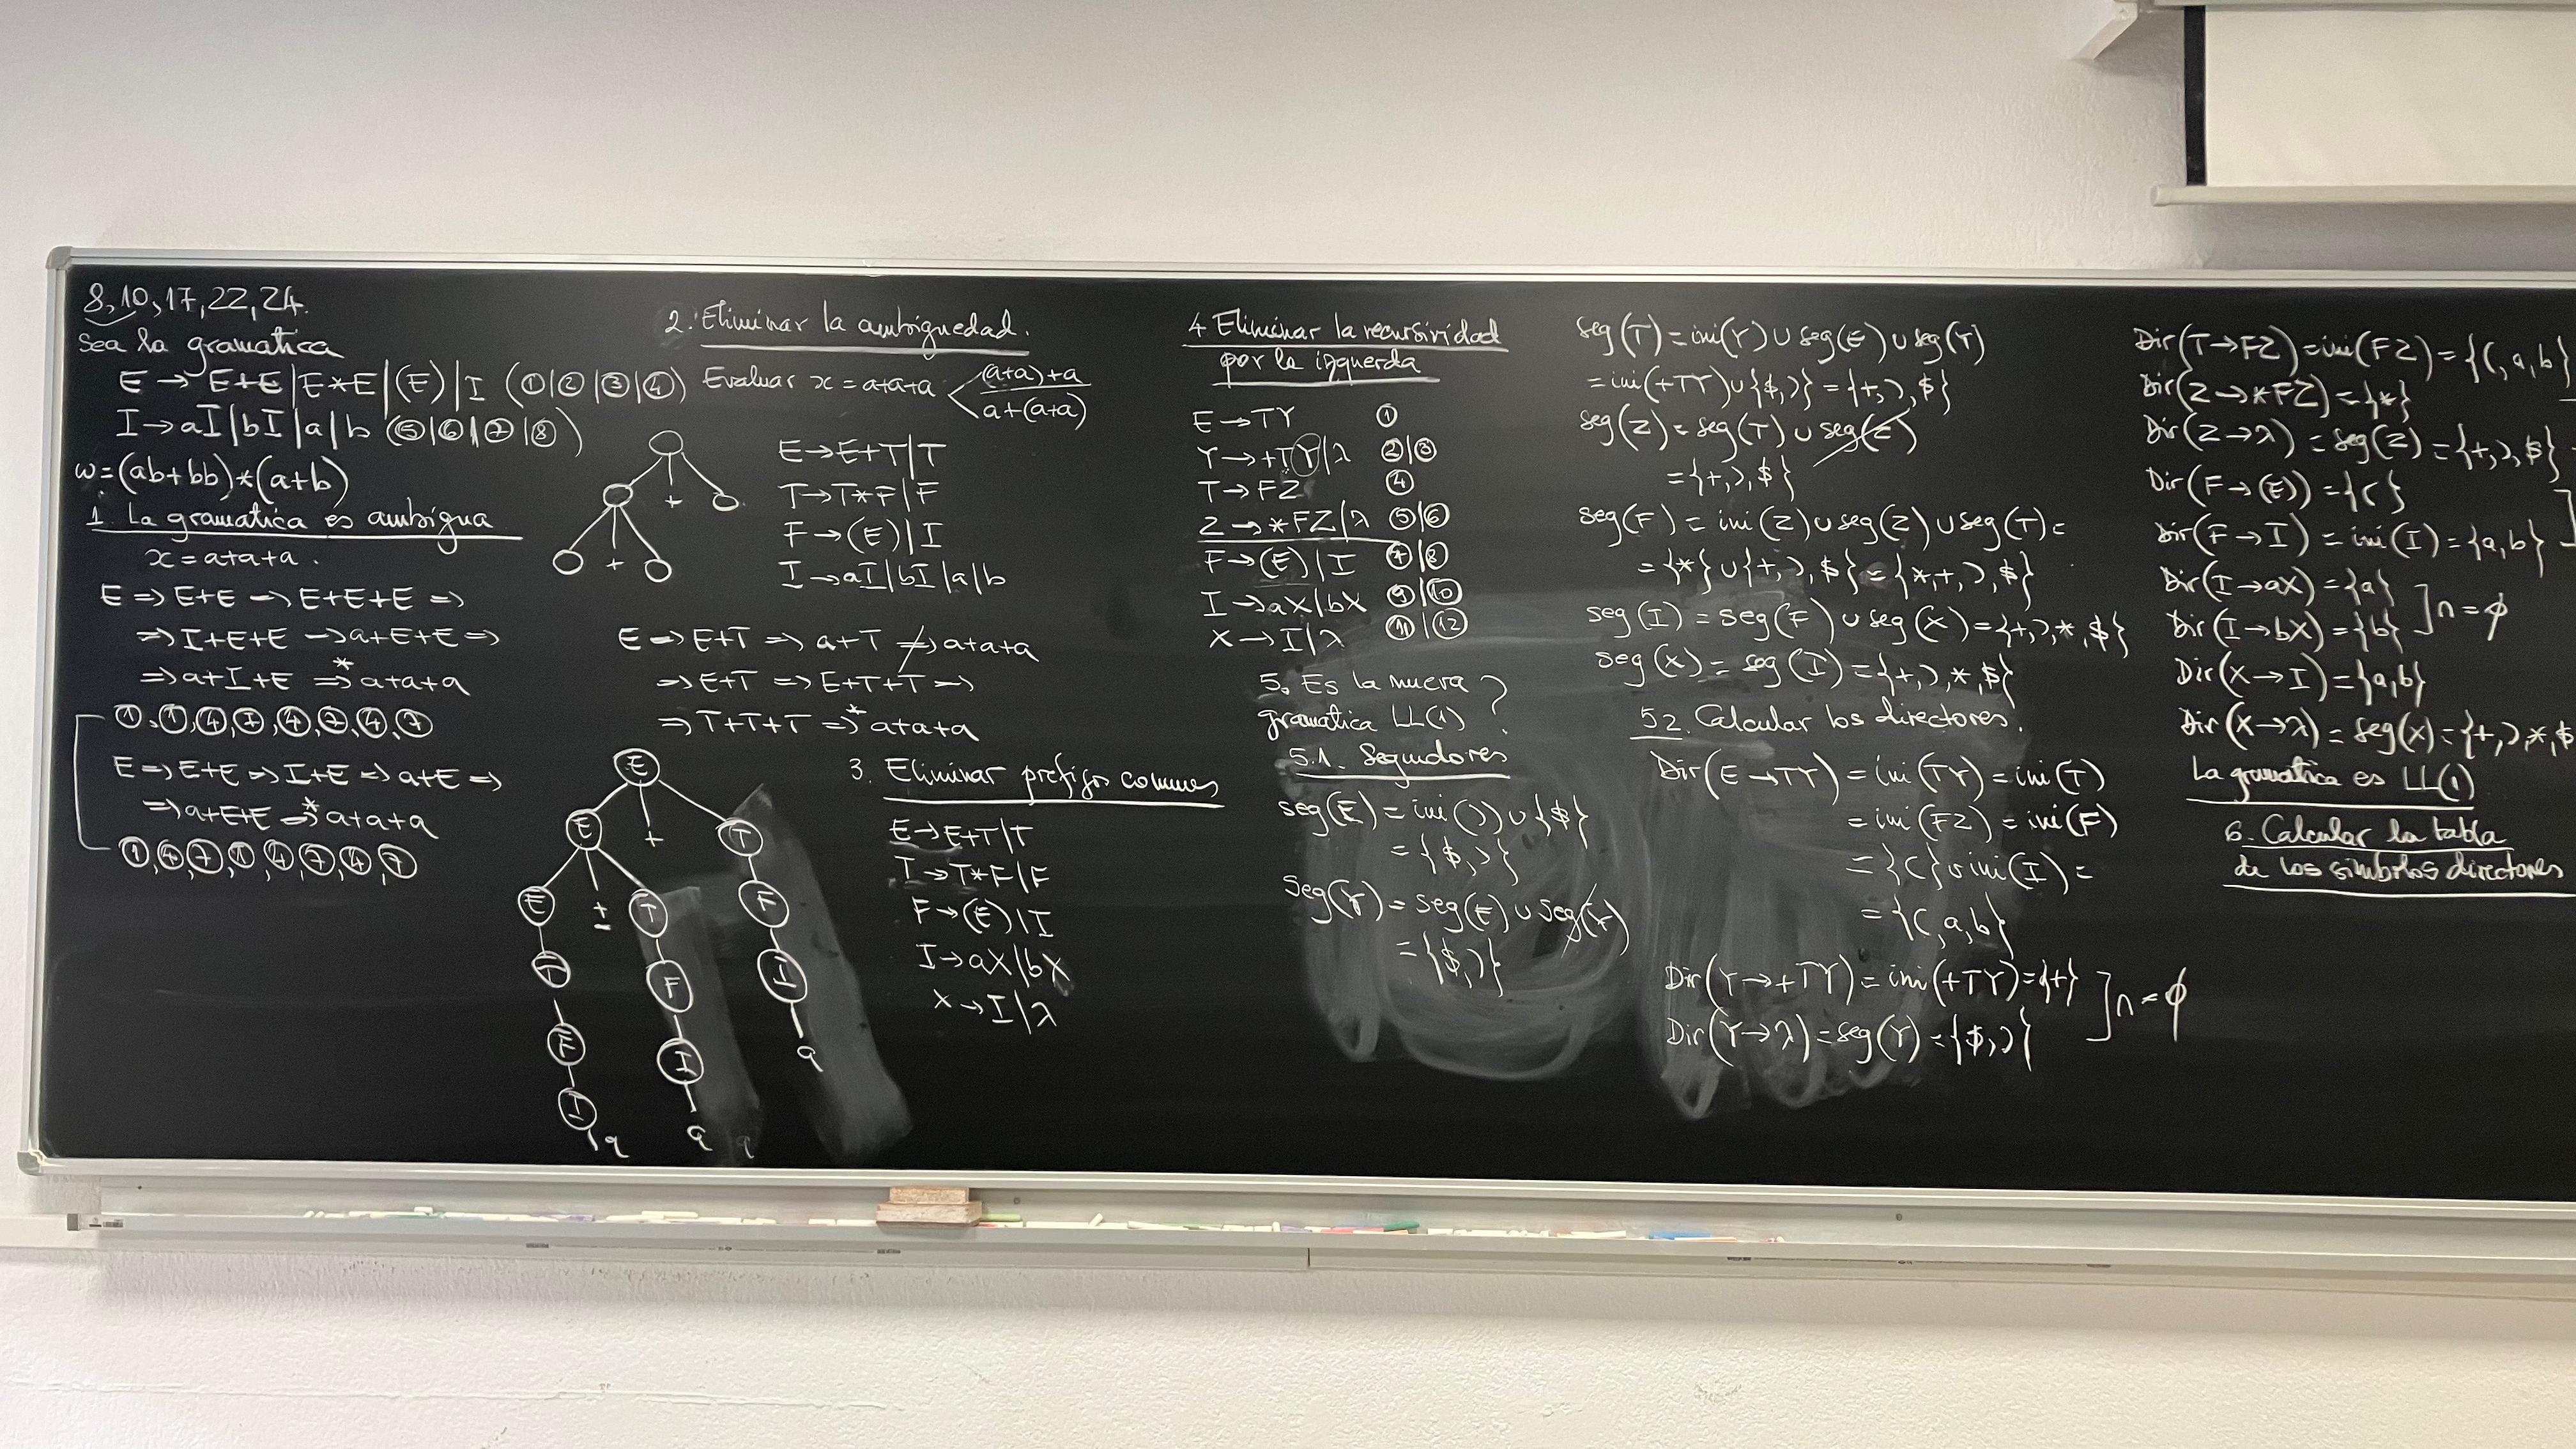 8, 10, 17, 22, 24.
Sea la gramatica
E → E+E | E*E | (E) | I (①|②|③|④)
I → aI | bI | a | b (⑤|⑥|⑦|⑧)
w = (ab+bb)*(a+b)
1. La gramatica es ambigua
x = a+a+a.
E ⇒ E+E ⇒ E+E+E ⇒
⇒ I+E+E ⇒ a+E+E ⇒
⇒ a+I+E ⇒* a+a+a
①,①,④,⑦,④,⑦,④,⑦
E ⇒ E+E ⇒ I+E ⇒ a+E ⇒
⇒ a+E+E ⇒* a+a+a
①,④,⑦,①,④,⑦,④,⑦
2. Eliminar la ambiguedad.
Evaluar x = a+a+a < (a+a)+a
a+(a+a)
+
+
E → E+T | T
T → T*F | F
F → (E) | I
I → aI | bI | a | b
E ⇒ E+T ⇒ a+T ⇏ a+a+a
⇒ E+T ⇒ E+T+T ⇒
⇒ T+T+T ⇒* a+a+a
E
E + T
E + T F
T F I
F I a
I a
a
3. Eliminar prefijos comunes
E → E+T | T
T → T*F | F
F → (E) | I
I → aX | bX
X → I | λ
4 Eliminar la recursividad
por la izquerda
E → TY ①
Y → +TY | λ ②|③
T → FZ ④
Z → *FZ | λ ⑤|⑥
F → (E) | I ⑦|⑧
I → aX | bX ⑨|⑩
X → I | λ ⑪|⑫
5. Es la nueva
gramatica LL(1) ?
5.1. Seguidores
seg(E) = ini( ) ) ∪ {$}
= {$, )}
seg(Y) = seg(E) ∪ seg(Y)
= {$, )}
seg(T) = ini(Y) ∪ seg(E) ∪ seg(Y)
= ini(+TY) ∪ {$, )} = {+, ), $}
seg(Z) = seg(T) ∪ seg(Z)
= {+, ), $}
seg(F) = ini(Z) ∪ seg(Z) ∪ seg(T) =
= {*} ∪ {+, ), $} = {*, +, ), $}
seg(I) = seg(F) ∪ seg(X) = {+, ), *, $}
seg(X) = seg(I) = {+, ), *, $}
5.2. Calcular los directores.
Dir(E → TY) = ini(TY) = ini(T)
= ini(FZ) = ini(F)
= {(} ∪ ini(I) =
= {(, a, b}
Dir(Y → +TY) = ini(+TY) = {+}
Dir(Y → λ) = seg(Y) = {$, )}
] ∩ = ϕ
Dir(T → FZ) = ini(FZ) = {(, a, b}
Dir(Z → *FZ) = {*}
Dir(Z → λ) = seg(Z) = {+, ), $}
Dir(F → (E)) = {(}
Dir(F → I) = ini(I) = {a, b}
Dir(I → aX) = {a}
Dir(I → bX) = {b}
] ∩ = ϕ
Dir(X → I) = {a, b}
Dir(X → λ) = seg(X) = {+, ), *, $
La gramatica es LL(1)
6. Calcular la tabla
de los simbolos directores